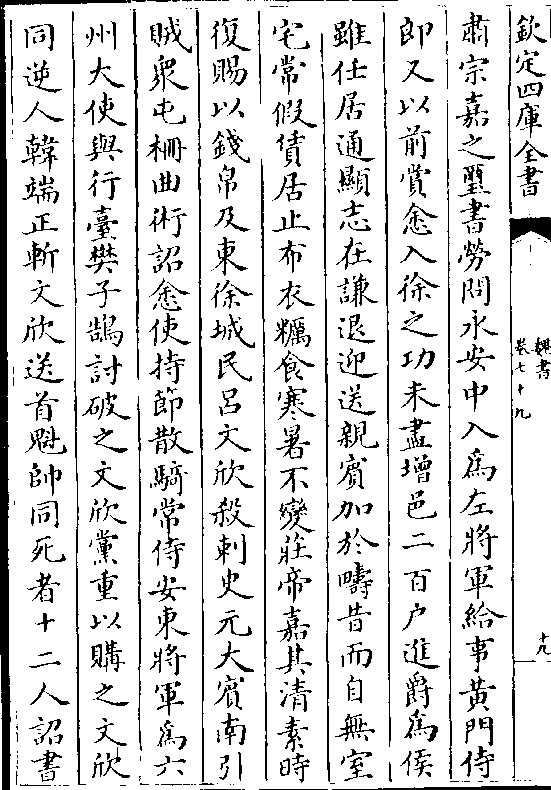 欽定四庫全書
魏書
卷七十九
十九
肅宗嘉之璽書勞問永安中入為左將軍給事黃門侍
郎又以前賞悆入徐之功未盡增邑二百户進爵為侯
雖任居通顯志在謙退迎送親賓加於疇昔而自無室
宅常假賃居止布衣糲食寒暑不變莊帝嘉其清素時
復賜以錢帛及東徐城民吕文欣殺刺史元大賓南引
賊衆屯柵曲術詔悆使持節散騎常侍安東將軍為六
州大使與行臺樊子鵠討破之文欣黨重以購之文欣
同逆人韓端正斬文欣送首魁帥同死者十二人詔書